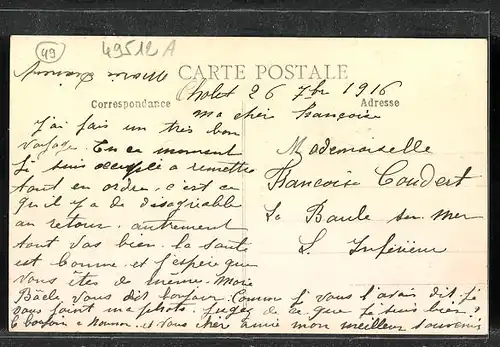 49
49512 A
CARTE POSTALE
Correspondance
Adresse
Cholet 26 7bre 1916
Ma cher Francoise
J'ai fais un tres bon
voyage. En ce moment
je suis occupé a remettre
tout en ordre, c'est ce
qu'il y a de désagréable
au retour. autrement
tout vas bien. la santé
est bonne et j'espère que
vous êtes de même. Marie
vous dit bonjour. Comme je vous l'avais dit je
vous joint ma photo. jugez de ce que je suis bien?
bonjour a Maman. et vous cher amie mon meilleur souvenir
Mademoiselle
Francoise Coudert
La Baule sur mer
L. Inférieure